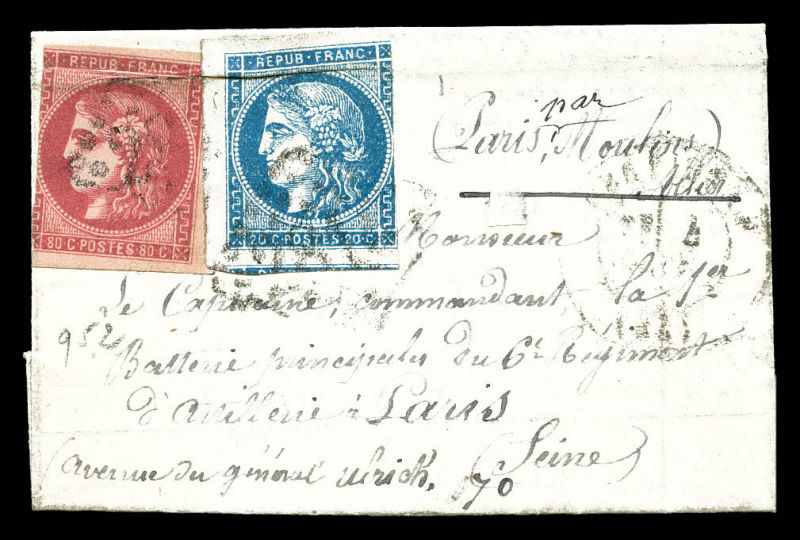 REPUB·FRANC
80·C·POSTES 80·C·
REPUB·FRANC·
20·C·POSTES 20·C·
par
(Paris, Moulins)
Allier
Monsieur
Le Capitaine, commandant la 1er
952
Batterie principale du 6e Régiment
d'artillerie à Paris
(Seine)
(avenue du général Ulrich. 70